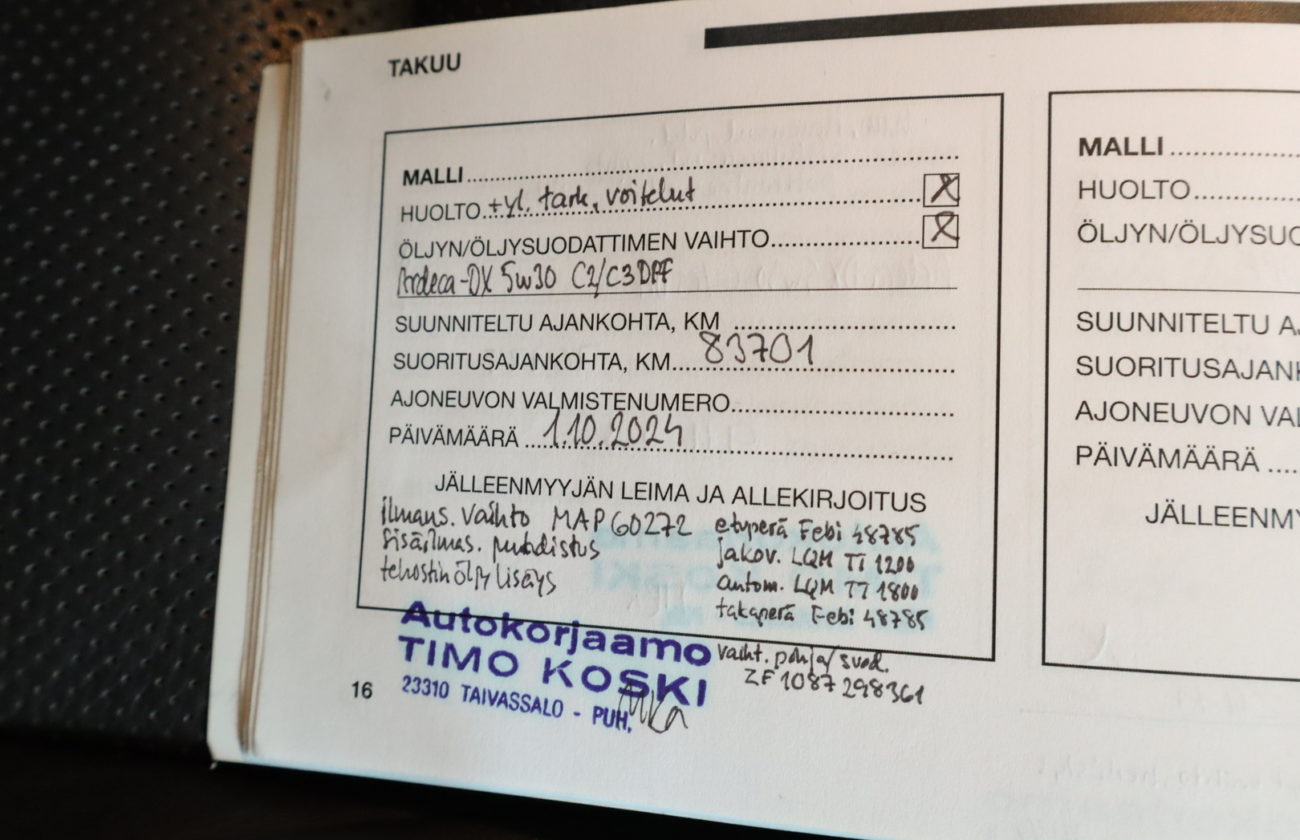 TAKUU
MALLI
HUOLTO +yl. tark, voitelut
ÖLJYN/ÖLJYSUODATTIMEN VAIHTO
Ardeca-DX 5W30 C2/C3 DPF
SUUNNITELTU AJANKOHTA, KM
SUORITUSAJANKOHTA, KM 83701
AJONEUVON VALMISTENUMERO
PÄIVÄMÄÄRÄ 1.10.2024
JÄLLEENMYYJÄN LEIMA JA ALLEKIRJOITUS
ilmans. vaihto MAP60272
sisäilmas. puhdistus
tehostin öljy lisäys
etuperä Febi 48785
jakov. LQM TT 1200
autom. LQM TT 1800
takaperä Febi 48785
vaiht. pohja/suod.
ZF 1087 298361
Autokorjaamo
TIMO KOSKI
23310 TAIVASSALO - PUH.
16
MALLI
HUOLTO
ÖLJYN/ÖLJYSUO
SUUNNITELTU A
SUORITUSAJANK
AJONEUVON VAL
PÄIVÄMÄÄRÄ
JÄLLEENMY